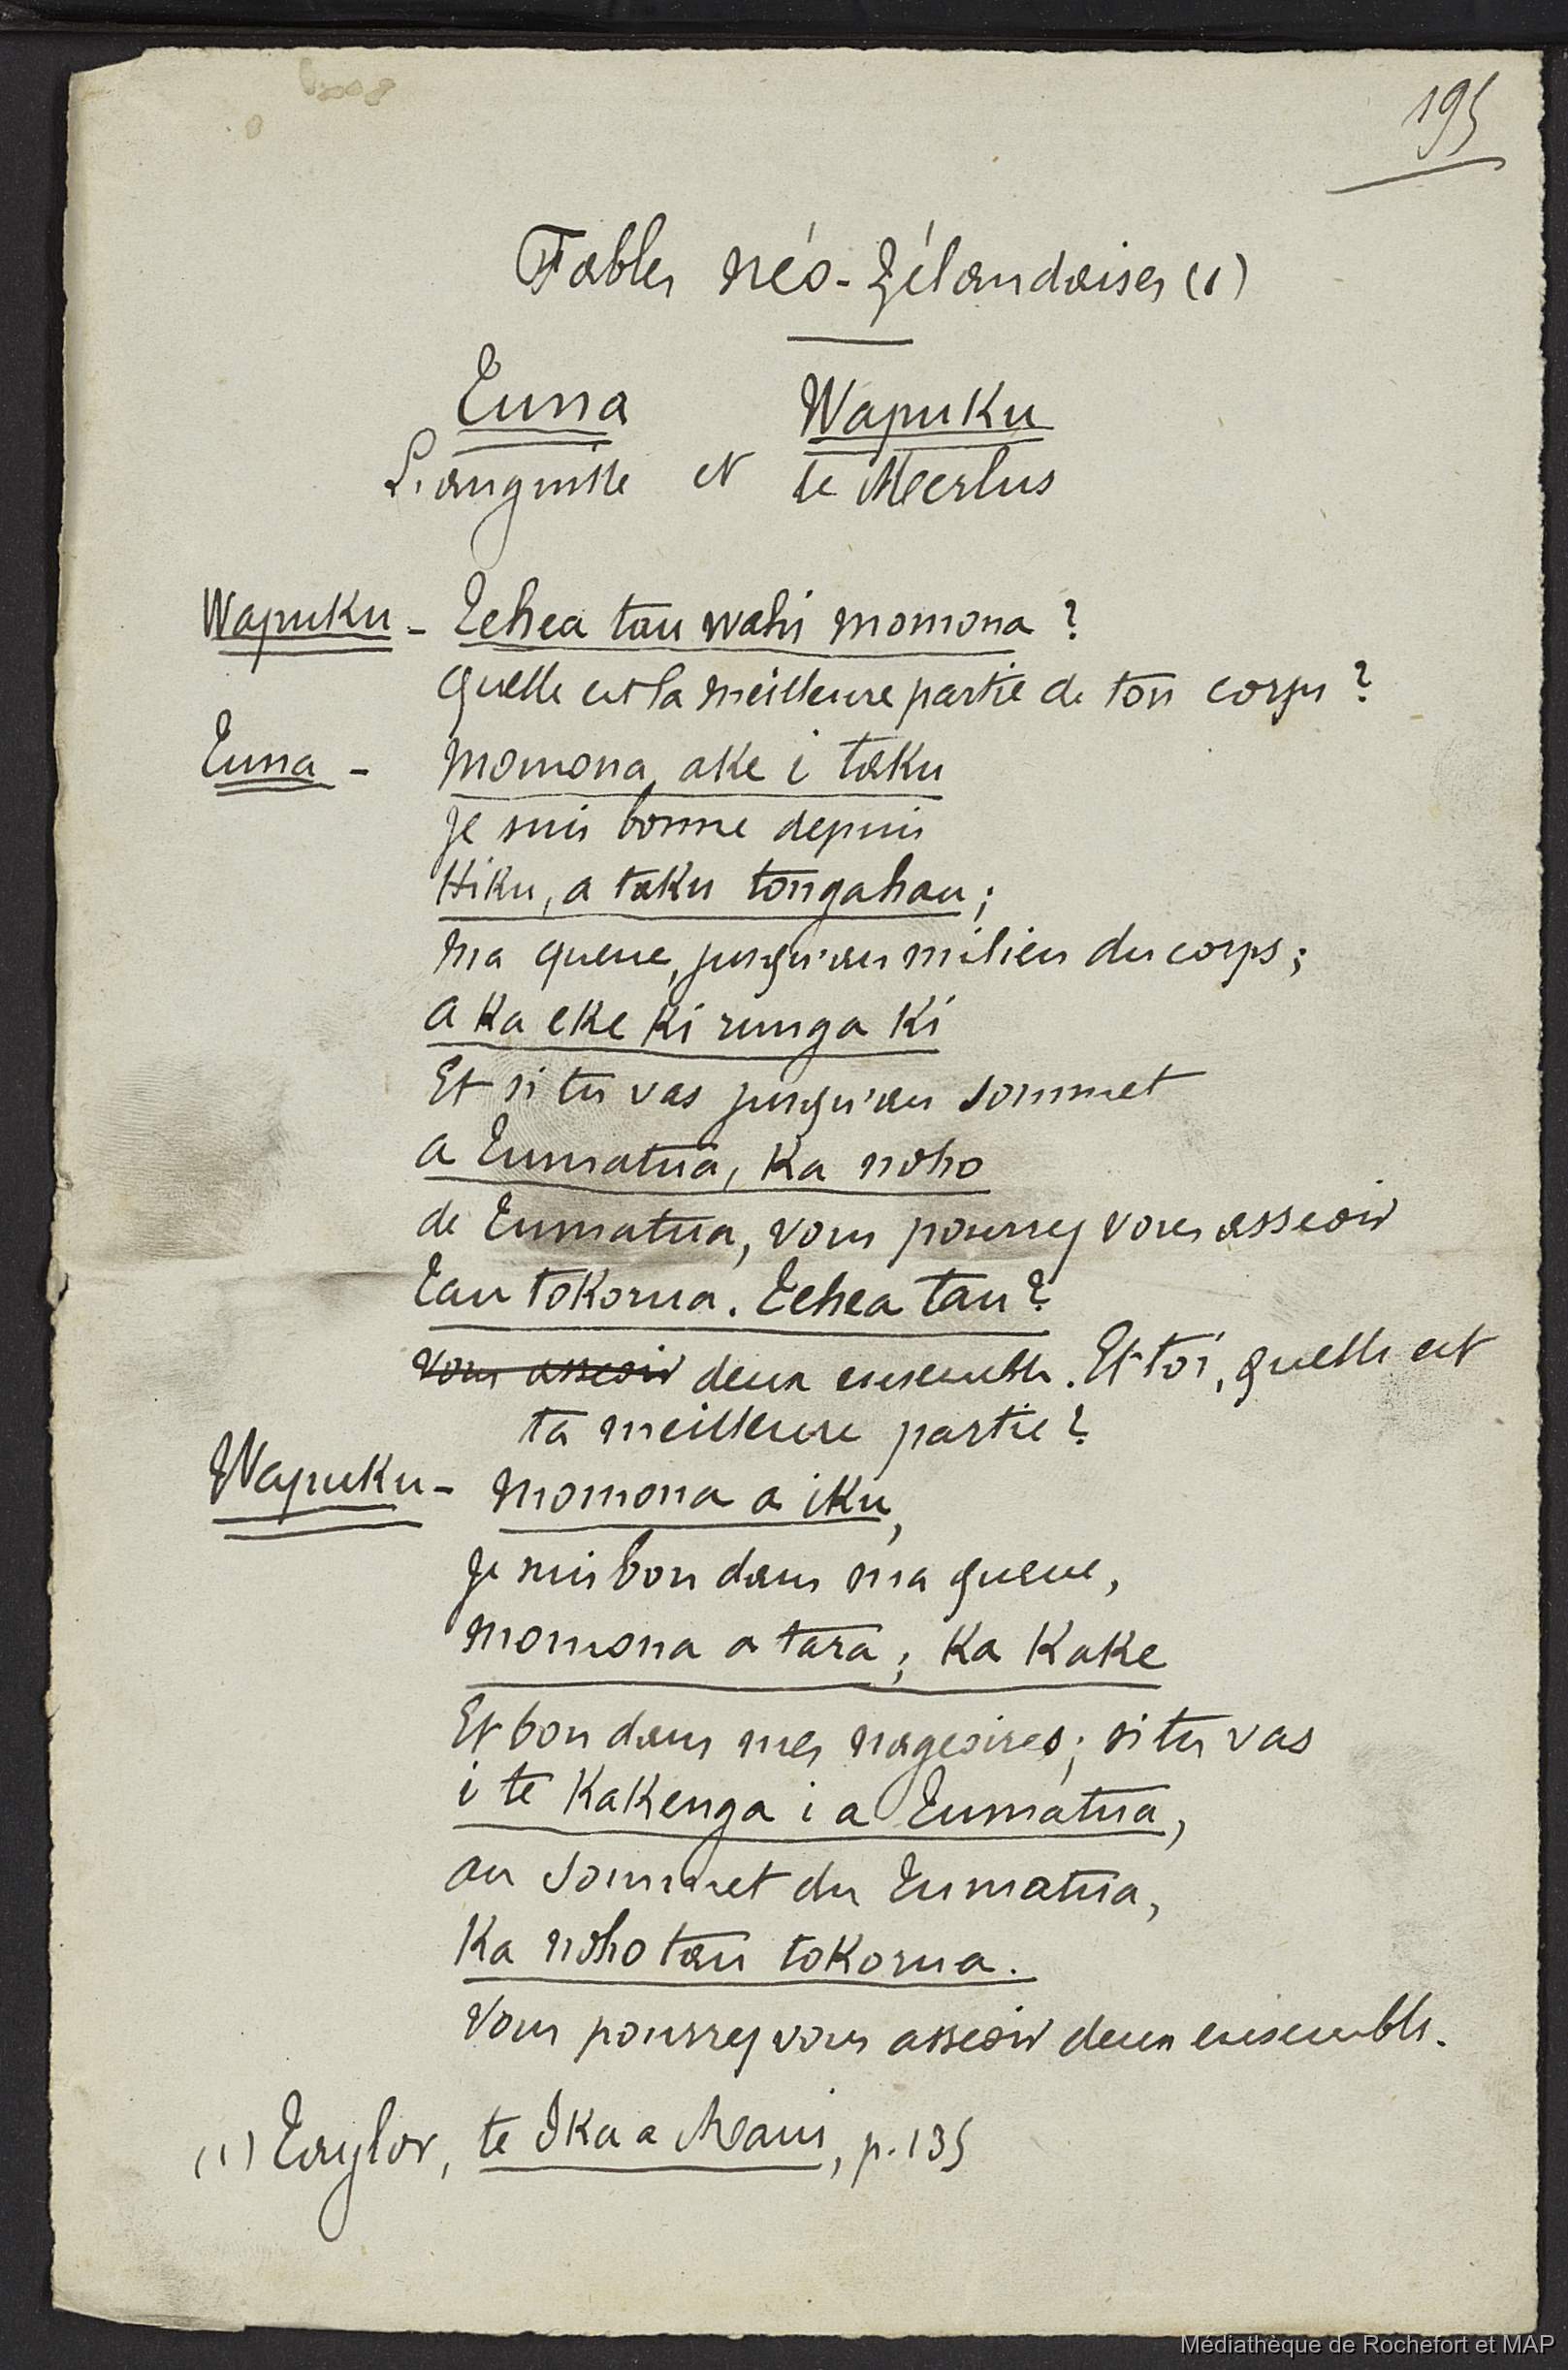 195
Fables néo-zélandaises (1)
Tuna Wapuku
L'anguille et le Merlus
Wapuku - Tehea tau wahi momona ?
Quelle est la meilleure partie de ton corps ?
Tuna - Momona, ake i taku
Je suis bonne depuis
Hiku, a taku tongahau ;
Ma queue, jusqu'au milieu du corps ;
a ka eke ki runga ki
Et si tu vas jusqu'au sommet
a Tumatua, ka noho
de Tumatua, vous pourrez vous asseoir
Tau tokorua. Tehea tau ?
vous asseoir deux ensemble. Et toi, quelle est
ta meilleure partie ?
Wapuku - Momona a iku,
Je suis bon dans ma queue,
Momona a tara ; Ka Kake
Et bon dans mes nageoires ; si tu vas
i te Kakenga i a Tumatua,
au sommet du Tumatua,
Ka noho tau tokorua.
Vous pourrez vous asseoir deux ensemble.
(1) Taylor, te Ika a Maui, p. 135
Médiathèque de Rochefort et MAP